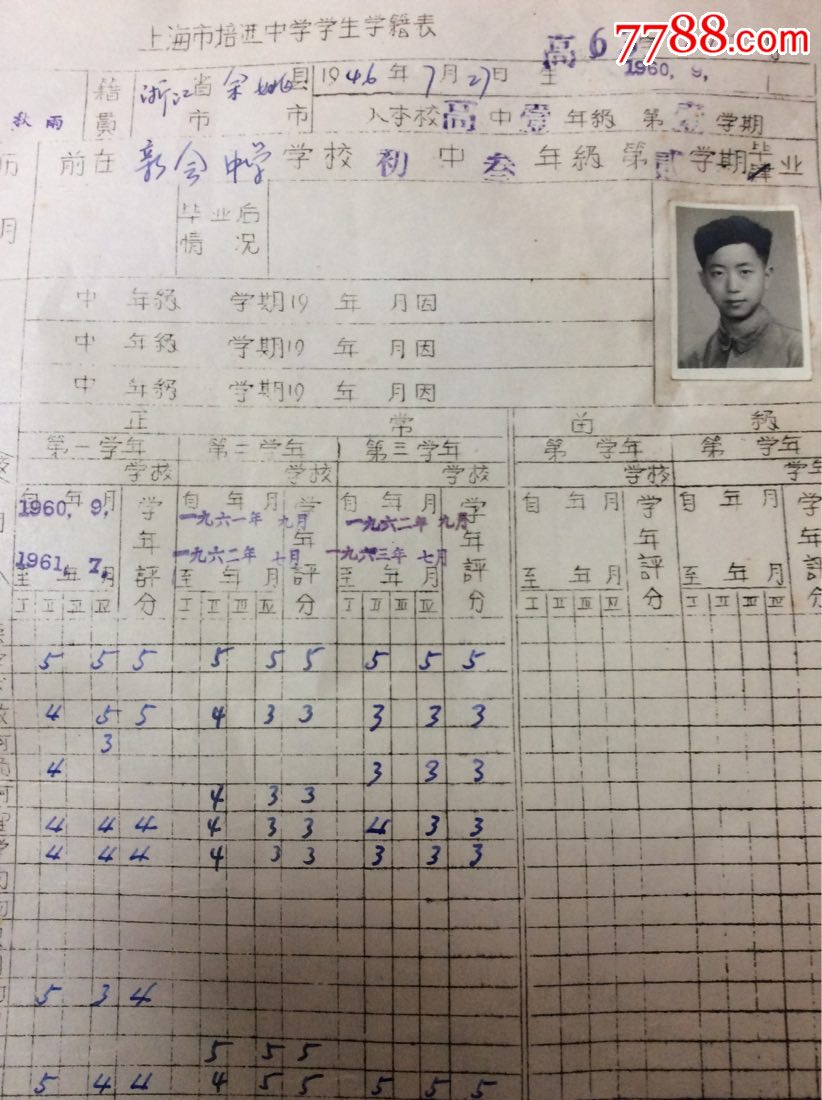 上海市培进中学学生学籍表
7788.com
高6
秋雨 籍貫 浙江省市 余姚县市 1946年7月27日生 1960.9.
入本校高中壹年級 第壹学期
历 前在新会中学学校初中叁年級第貳学期毕业
月 毕业后情况
中 年級 学期19 年 月因
中 年級 学期19 年 月因
中 年級 学期19 年 月因
正常 留級
第一学年 第二学年 第三学年 第 学年 第 学年
学校 学校 学校 学校 学年
自 年 月 学年評分 自 年 月 学年評分 自 年 月 学年評分 自 年 月 学年評分 自 年 月 学年評分
1960.9. 一九六一年 九月 一九六二年 九月
1961.7. 一九六二年 七月 一九六三年 七月
至 年 月 至 年 月 至 年 月 至 年 月 至 年 月
I II III IV I II III IV I II III IV I II III IV I II III IV
5 5 5 5 5 5 5 5 5
4 5 5 4 3 3 3 3 3
3
4 3 3 3
4 3 3
4 4 4 4 3 3 4 3 3
4 4 4 4 3 3 3 3 3
5 3 4
5 5 5
5 4 4 4 5 5 5 5 5